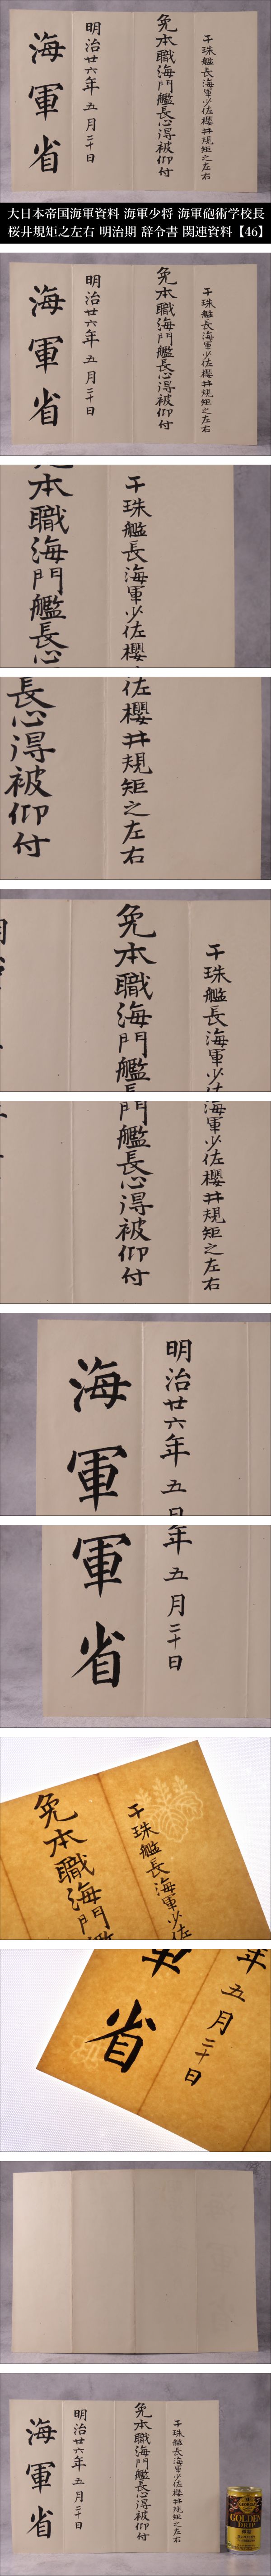 干珠艦長海軍少佐櫻井規矩之左右
免本職海門艦長心得被仰付
明治廿六年五月二十日
海軍省
大日本帝国海軍資料 海軍少将 海軍砲術学校長
桜井規矩之左右 明治期 辞令書 関連資料【46】
干珠艦長海軍少佐櫻井規矩之左右
免本職海門艦長心得被仰付
明治廿六年五月二十日
海軍省
干珠艦長海軍少佐櫻
本職海門艦長心
佐櫻井規矩之左右
長心得被仰付
干珠艦長海軍少佐
免本職海門艦長
海軍少佐櫻井規矩之左右
門艦長心得被仰付
明治廿六年五月
海軍
年五月二十日
軍省
干珠艦長海軍少佐
免本職海門
年五月二十日
省
干珠艦長海軍少佐櫻井規矩之左右
免本職海門艦長心得被仰付
明治廿六年五月二十日
海軍省
GEORGIA
GOLDEN
DRIP